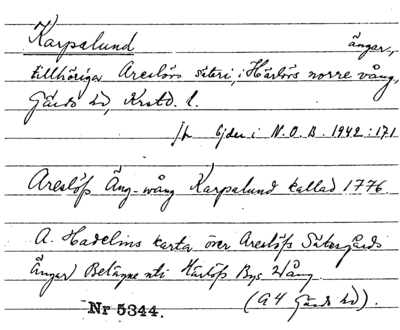 Karpalund ängar,
tillhöriga Areslövs säteri, i Härlövs norre vång,
Gärds hd, Krstd. l.
Ejder i N.O.B. 1942:171
Areslöfs Äng-wång Karpalund kallad 1776.
A. Hadelins karta över Areslöfs Sätesgårds
Ängar Belägne uti Härlöfs Bys Wång.
(A4 Gärds hd).
Nr 5344.